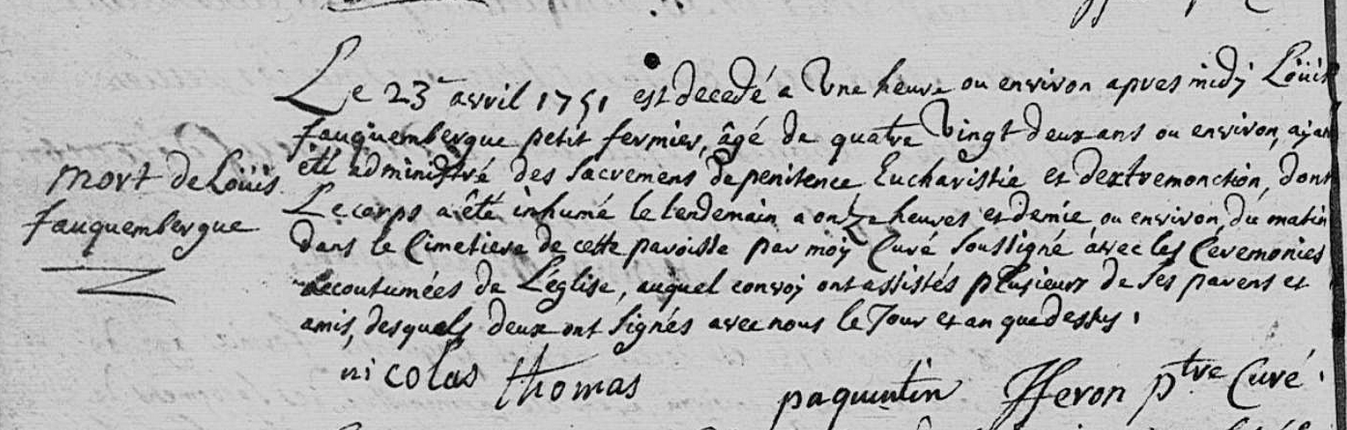 Le 23r avril 1751 est decedé a Une heure ou environ apres midy Loüis
fauquembergue petit fermier, âgé de quatre Vingt deux ans ou environ, ayan
êté administré des Sacremens de penitence Eucharistie et dextremonction, dont
Le corps a êté inhumé le lendemain a onze heures et demie ou environ du matin
mort de Loüis
fauquembergue
dans le Cimetiere de cette paroisse par moy Curé soussigné avec les Ceremonies
accoutumées de L'église, auquel convoy ont assistés plusieurs de ses parens et
amis, desquels deux ont signés avec nous le Jour et an que dessus.
nicolas thomas paquentin Fferon ptre Curé.